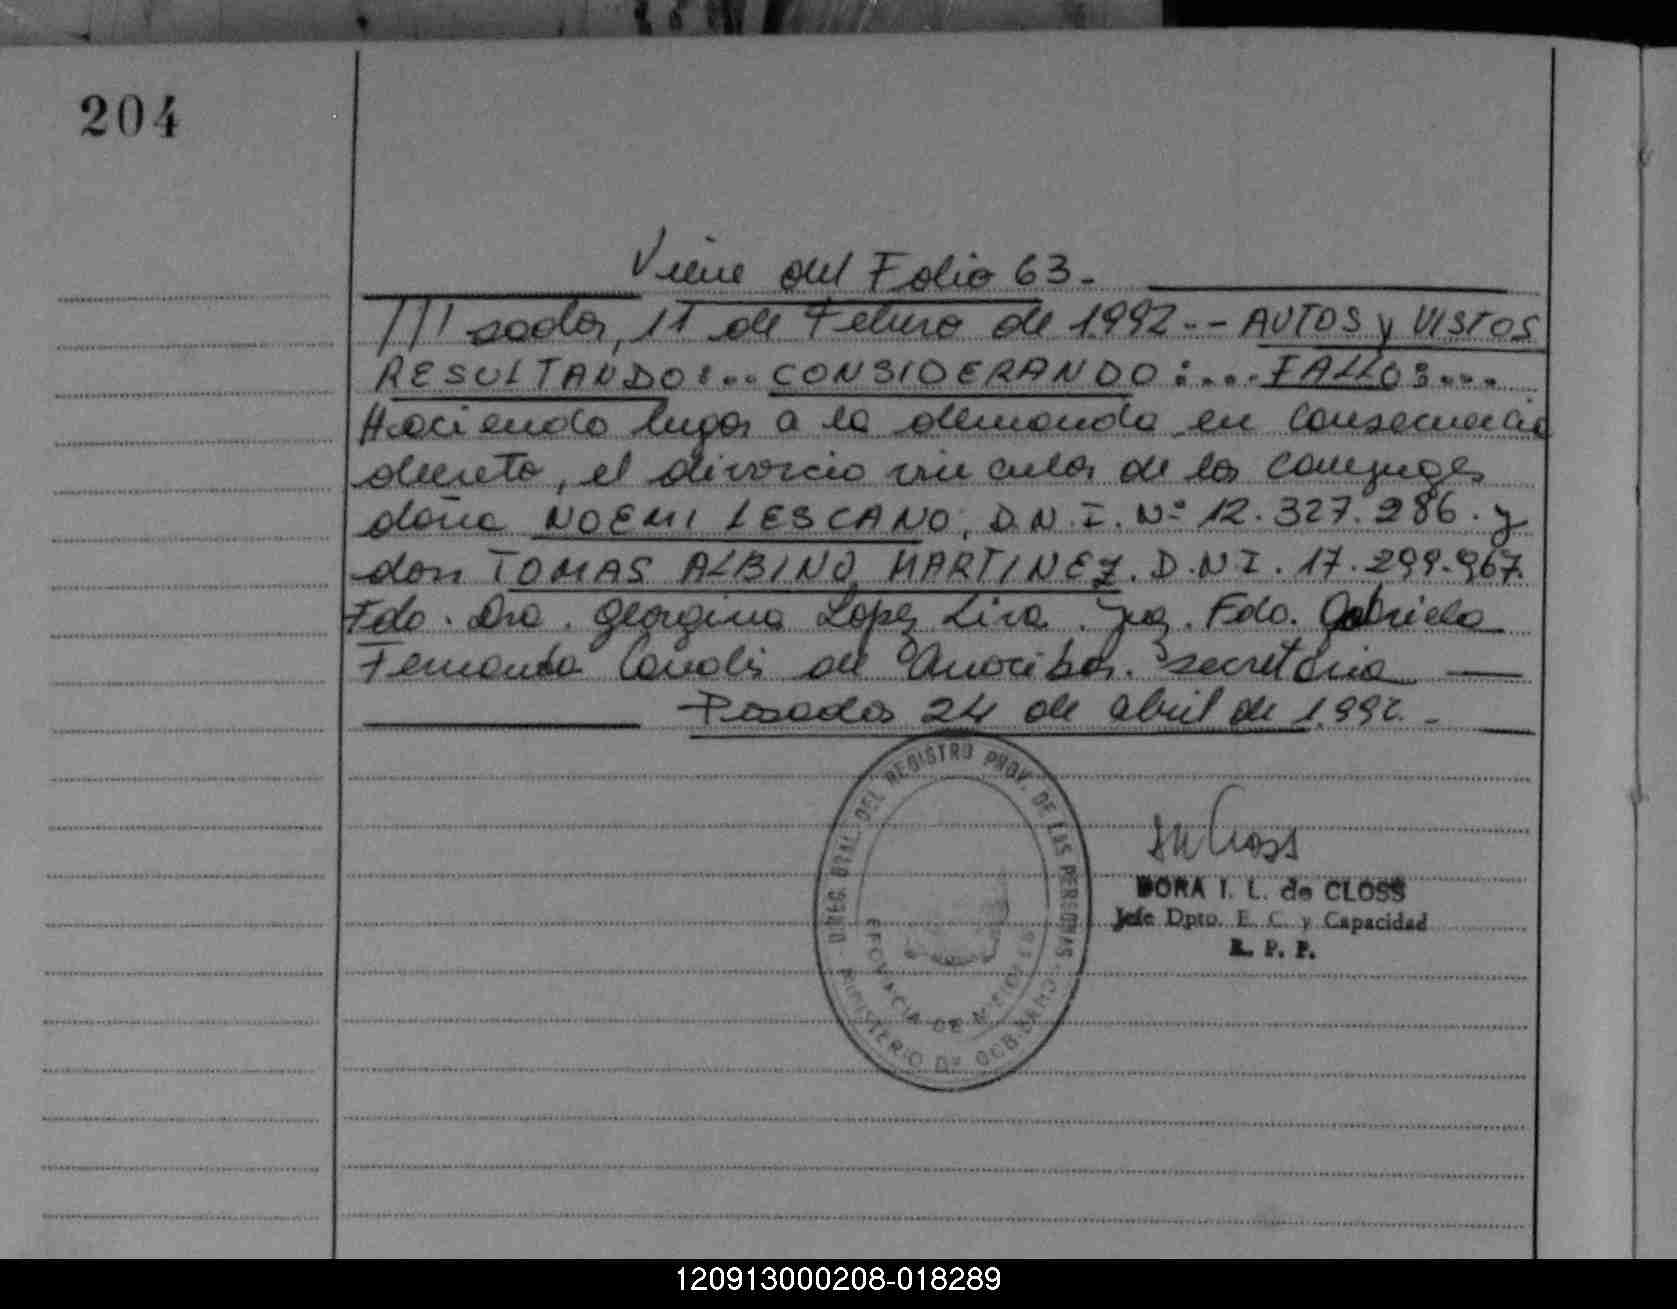 204
Viene del Folio 63.-
///sadas, 11 de Febrero de 1.992.-- AUTOS y VISTOS
RESULTANDO:... CONSIDERANDO:.... FALLO:...
Haciendo lugar a la demanda en consecuencia
decreto, el divorcio vincular de los conyuges
doña NOEMI LESCANO, D.N.I. Nº 12.327.286. y
don TOMAS ALBINO MARTINEZ. D.N.I. 17.299.967.
Fdo. Dra. Georgina Lopez Lira. Juez. Fdo. Gabriela
Fernanda Canalis de secretaria
Posadas 24 de abril de 1.992.-
DIREC. GRAL. DEL REGISTRO PROV. DE LAS PERSONAS
MINISTERIO DE GOBIERNO
PROVINCIA DE MISIONES
DORA I. L. de CLOSS
Jefe Dpto. E. C. y Capacidad
R. P. P.
120913000208-018289